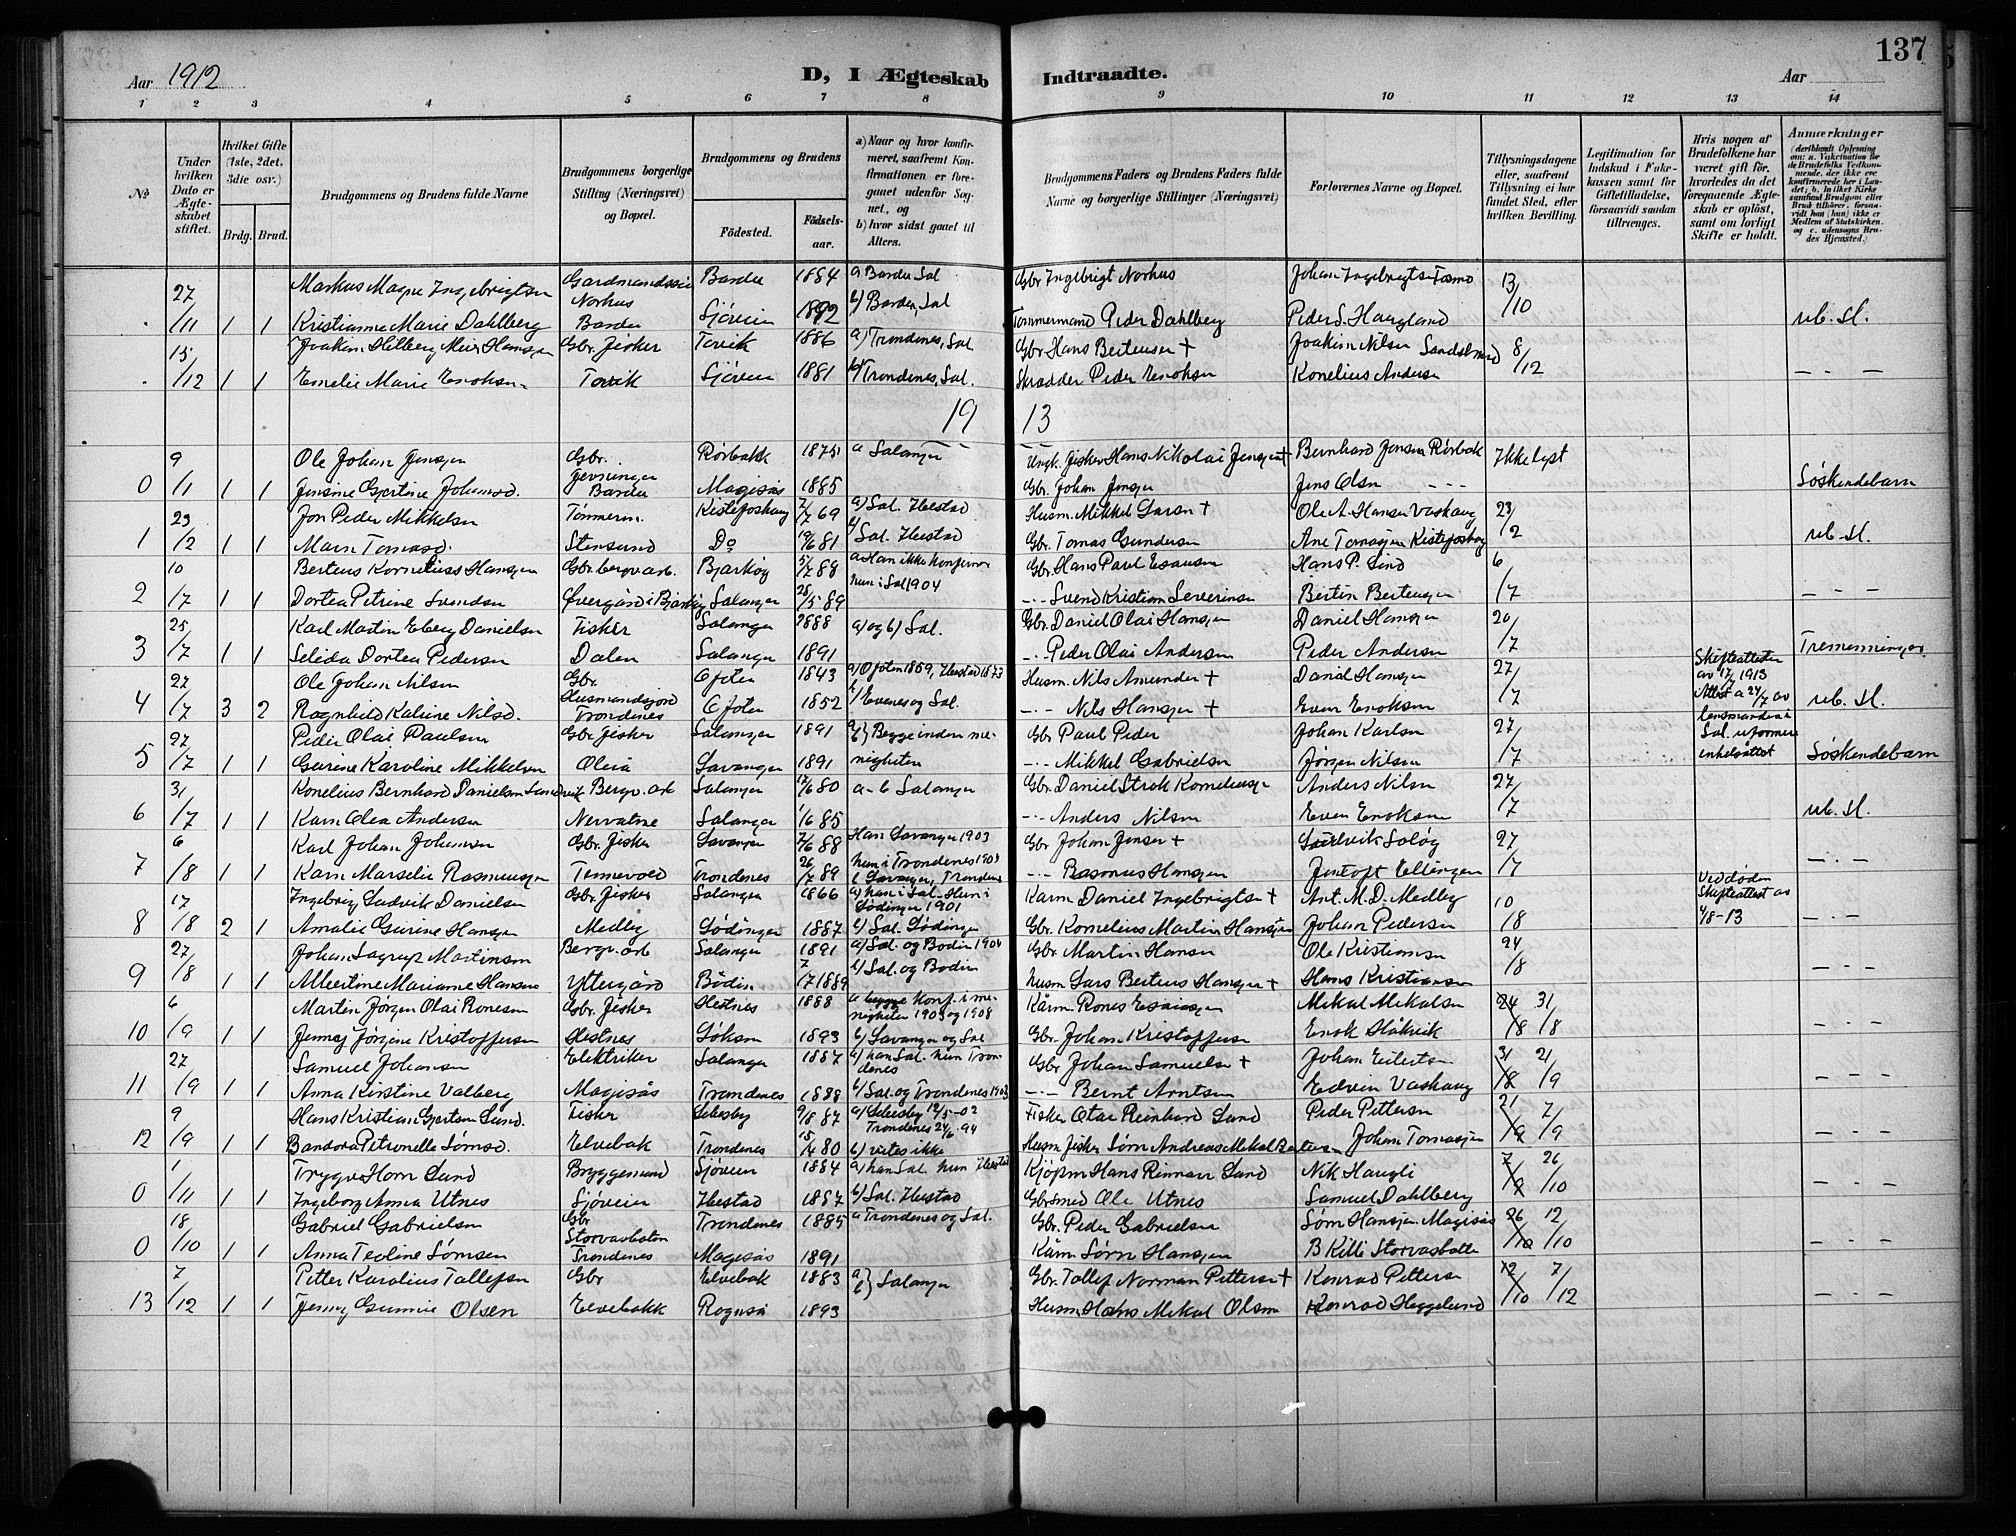 137
Aar 1912
D, I Ægteskab Indtraadte.
Aar
1 2 3 4 5 6 7 8 9 10 11 12 13 14
№
Under hvilken Dato er Ægteskabet stiftet.
Hvilket Gifte (1ste, 2det, 3die osv.)
Brdg. Brud.
Brudgommens og Brudens fulde Navne
Brudgommens borgerlige Stilling (Næringsvei) og Bopæl.
Brudgommens og Brudens
Födested.
Födselsaar.
a) Naar og hvor konfirmeret, saafremt Konfirmationen er foregaaet udenfor Sognet, og
b) hvor sidst gaaet til Alters.
Brudgommens Faders og Brudens Faders fulde Navne og borgerlige Stillinger (Næringsvei)
Forlovernes Navne og Bopæl.
Tillysningsdagene eller, saafremt Tillysning ei har fundet Sted, efter hvilken Bevilling.
Legitimation for Indskud i Enkekassen samt for Giftetilladelse, forsaavidt saadan tiltrænges.
Hvis nogen af Brudefolkene har været gift för, hvorledes da det foregaaende Ægteskab er oplöst, samt om lovligt Skifte er holdt.
Anmærkninger
27 Markus Magne Ingebrigtsen Gaardmandssön Bardu 1884 a Bardu, Sal Gbr Ingebrigt Norhus Johan Ingebrigtsen Fosmo 13
/11 1 1 Kristianne Marie Dahlberg Norhus Bardu Sjöveien 1892 b) Bardu, Sal Tömmermand Peder Dahlberg Peder S. Haugland /10 ub. sl.
15 Joakim Hilberg Meier Hansen Gbr. fisker Tovik 1886 a) Trondenes, Sal. Gbr Hans Berteusen + Joakim Nilsen Sandstrand 8
/12 1 1 Emelie Marie Enoksen Tovik Sjöveien 1881 b) Trondenes, Sal. Skrædder Peder Enoksen Konelius Andersen /12 — · —
19 13
9 Ole Johan Jensen Gbr. Rörbakk 1875 a Salangen Ungk. fisker Hans Nikolai Jensen + Bernhard Jensen Rörbak Ikke lyst
0 /1 1 1 Jensine Gjertine Johansd. Bardu Magisås 1885 Gbr. Johan Jensen Jens Olsen - - - Söskendebarn
23 Jon Peder Mikkelsen Tömmerm. Kistefoshaug 7/7 69 a) Sal. Ibestad Husm. Mikkel Larsen + Ole A. Hansen Vashaug 23
1 /2 1 1 Maren Tomasd. Stensund Do 19/6 81 b) Sal. Ibestad Gbr. Tomas Gundersen Ane Tomasjen Kistefoshog /2 ub. sl.
10 Berteus Kornelius Hansen Gbr. bergv.arb. Bjarköy 5/7 88 a Han ikke konfirm. Gbr. Hans Paul Esaiasen Hans P. Lind 6
2 /7 1 1 Dortea Petrine Svendsen Övergård i Bjarköy Salangen 28/5 89 hun i Sal 1904 -·- Svend Kristian Severinsen Bertin Berteusen /7 — · —
25 Karl Martin Eberg Danielsen Fisker Salangen 1888 a) og b) Sal. Gbr. Daniel Olai Hansen Daniel Hansen 20
3 /7 1 1 Selida Dortea Pedersen Dalen Salangen 1891 -·- Peder Olai Andersen Peder Andersen /7 Tremenninger
27 Ole Johan Nilsen Gbr. Ofoten 1843 a) Ofoten 1859, Ibestad 1873 Husm. Nils Amunder + Daniel Hansen 27 Skifteattester av 17/7 1913
4 /7 3 2 Ragnhild Katrine Nilsd. Trondenes Ofoten 1852 b) Evenes og Sal. -·- Nils Hansen + Even Enoksen /7 Attest a 24/7 av lensmanden i Sal. uformeenkelsattest ub. sl.
27 Peder Olai Paulsen Gbr. fisker Salangen 1891 a b} Begge inden menigheten Gbr Paul Peder Johan Karlsen 27
5 /7 1 1 Gurine Karoline Mikkelsen Oleiå Lavangen 1891 -·- Mikkel Gabrielsen Jörgen Nilsen /7 Söskendebarn
31 Konelius Bernhard Danielsen Bergv. arb Salangen 17/6 80 a-b Salangen Gbr. Daniel Strok Korneliusen Anders Nilsen 27
6 /7 1 1 Karen Olea Andersen Nervatne Salangen 1/6 85 -·- Anders Nilsen Even Enoksen /7 ub. sl.
6 Karl Johan Johansen Gbr. fisker Lavangen 7/6 88 Han Lavangen 1903 Gbr Johan Jensen + Ludvik Salög 27
7 /8 1 1 Karen Marselie Rasmussen Tennevold Trondenes 26/7 89 hun i Trondenes 1904 b Lavangen, Trondenes -·- Rasmus Hansen Jentoft Ellingsen /7 — · —
17 Ingebrig Ludvik Danielsen Gbr. fisker Salangen 1866 a) han i Sal - Hun i Lödingen 1901 Kårm Daniel Ingebrigtsen + Ant. M. D. Medby 10 Ved döden Skifteattest av
8 /8 2 1 Amalie Gurine Hansen Medby Lödingen 1887 b) Sal. Lödingen Gbr. Kornelius Martin Hansen Johan Pedersen /8 4/8-13 — · —
27 Johan Lagrup Martinsen Bergv. arb Salangen 1891 a) Sal. og Bodin 1904 Gbr. Martin Hansen Ole Kristiansen 24
9 /8 1 1 Albertine Marianne Hansen Yttergård Bödin 7/7 1889 b) Sal. og Bodin husm Lars Berteus Hansen + Hans Kristiansen /8 — · —
6 Martin Jörgen Olai Ronesen Gbr. fisker Hesnes 1888 a begge konf. i menigheten 1903 og 1908 Kårm. Rones Esaiasen Mikal Mikalsen 24 31
10 /9 1 1 Jenny Jörgine Kristoffersen Hesnes Löksen 1893 b) Lavangen og Sal Gbr. Johan Kristoffersen Enok Håkvik /8 /8 — · —
27 Samuel Johansen Elektriker Salangen 1887 a) han Sal. hun Trondenes Gbr Johan Samuelsen + Johan Eilertsen 31 21
11 /9 1 1 Anna Kirstine Valberg Magisås Trondenes 1888 b) Sal. og Trondenes 1903 -·- Bernt Arntsen Edvin Vashaug /8 /9 — · —
9 Hans Kristian Gjertsen Lund. Fisker Lebesby 9/8 87 a) Lebesby 12/5-02 Trondenes 24/6 94 Fisker Otar Reinhard Lund Peder Pettersen 21 7
12 /9 1 1 Bandora Petronelle Sörensd. Elvebak Trondenes 15/4 80 b) vites ikke Husm. fisker Sörn Andreas Mekal Johan Tomasjen /9 /9 — · —
1 Trygve Horn Lund Bryggemand Sjöveien 1884 a) han Sal. hun Ibestad Kjöpm Hans Rinnan Lund Nik Haugli 7 26
0 /11 1 1 Ingeborg Anna Utnes Sjöveien Ibestad 1887 b) Sal. Ibestad Gbrsmed Ole Utnes Samuel Dahlberg /10 — · —
18 Gabriel Gabrielsen Gbr Storvasbotn Trondenes 1885 a Trondenes og Sal. Gbr. Peder Gabrielsen Sörn Hansen Magisås 26 12
0 /10 1 1 Anna Teoline Sörnsen Trondenes Magisås 1891 Kårm Sörn Hansen B Killi Storvasbotn /10 /10 — · —
7 Petter Karolius Tollefsen Gbr Elvebak 1883 a b} Salangen Gbr. Tollef Norman Pettersen + Konrad Pettersen 12 7
13 /12 1 1 Jenny Gunnie Olsen Elvebakk Rognså 1893 Husm Hans Mekal Olsen Konrad Heggelund /10 /12 — · —